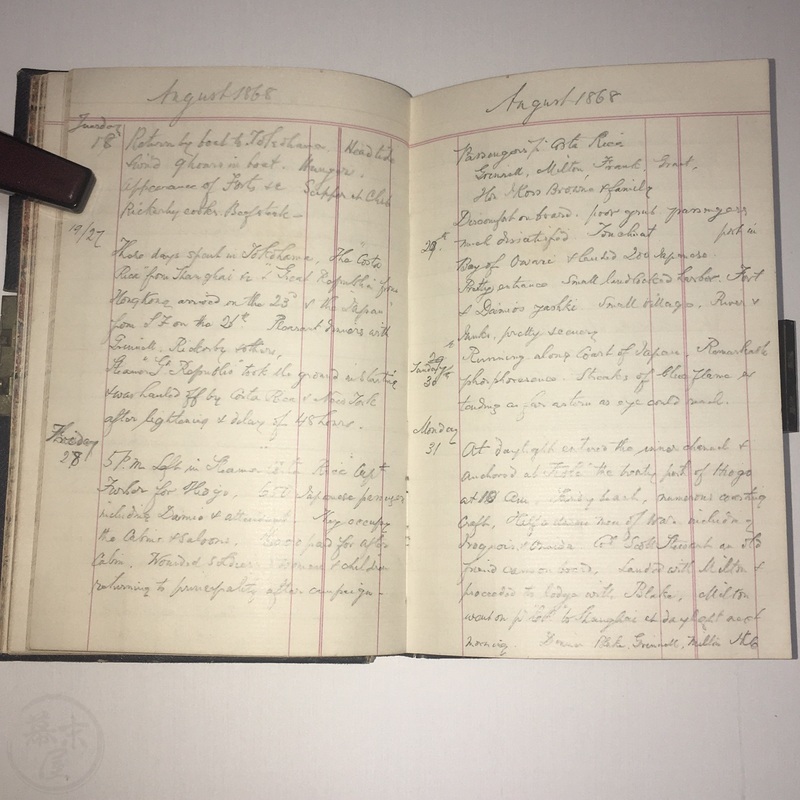 August 1868
Tuesday
18 Return by boat to Yokohama. Head tide
wind 9 hours in boat.
appearance of Forts &c Supper at Club
Rickerby cooks Beefsteak -
19/27
These days spent in Yokohama, The "Costa
Rica" from Shanghai & "Great Republic" from
Hongkong arrived on the 23d & the "Japan"
from S F on the 26th. Pleasant dinners with
Grinnell, Rickerby & others.
Steamer Gt Republic took the ground in starting
& was hauled off by Costa Rica & New York
after lightening & delay of 48 hours.
Friday
28 5 P.M. Left in Steamer Costa Rica Capt
for Hiogo, 650 Japanese passengers
including Daimio & attendants. They occupy
the Cabins & Saloons. paid for after
Cabin. Wounded soldiers & women & children
returning to principality after campaign -
August 1868
Passengers pr Costa Rica
Grinnell, Milton, Frank, Grant,
Hon Ross Browne & family
Discomfort on board. poor grub passengers
29th. much dissatisfied put in
Bay of Owari & landed 200 Japanese.
Pretty entrance small landlocked harbor. Fort
& Daimios yashki Small village, River &
Junks, pretty scenery
Sunday
30 Running along coast of Japan. Remarkable
phosphorescence. Streaks of blue flame ex
tending as far astern as eye could reach.
Monday
31 - At daylight entered the inner channel &
anchored at the port of Hiogo
at 10 a.m. beach, numerous coasting
Craft, Half a dozen men of War, including
Col Scott Stewart an old
friend came on board. Landed with Milton &
proceeded to lodge with Blake, Milton
went on to Shanghai at daylight next
morning. Dinner Blake, Grinnell, Milton
幕末屋